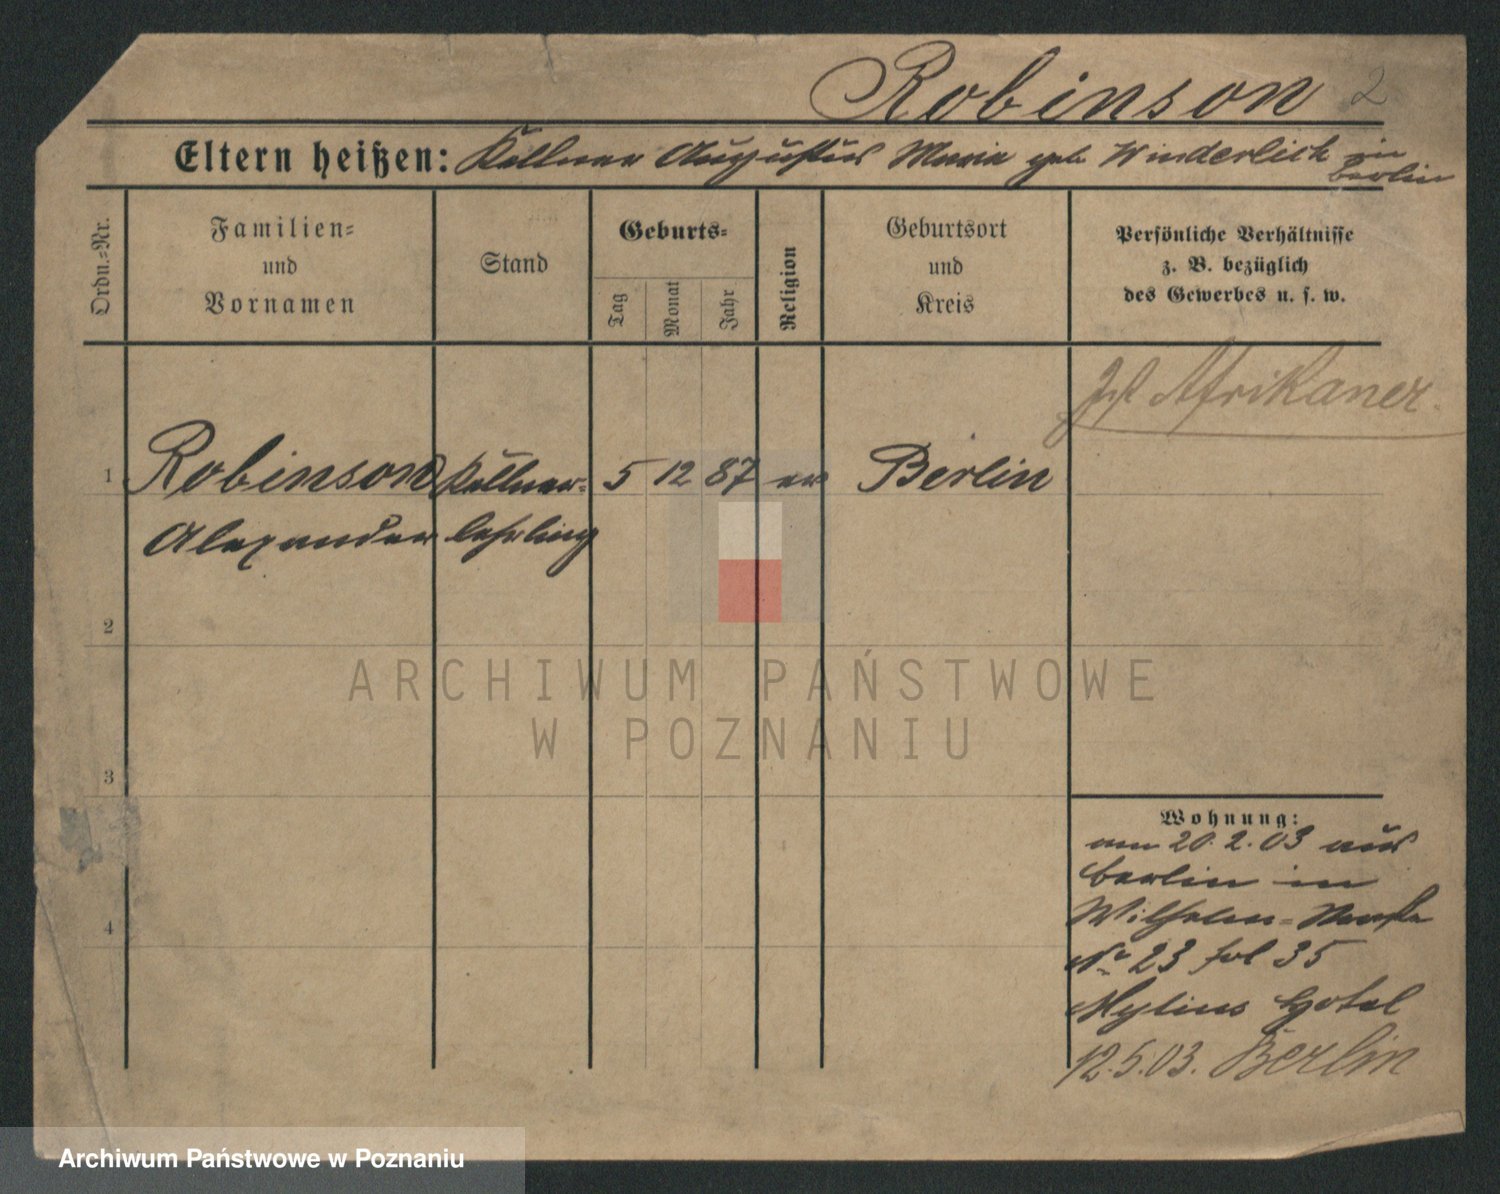 Robinson 2
Eltern heißen: Kellner Augustus Maria geb Winderlich in
Berlin
Ordn.=Nr.
Familien=
und
Vornamen
Stand
Geburts=
Tag
Monat
Jahr
Religion
Geburtsort
und
Kreis
Persönliche Verhältnisse
z. B. bezüglich
des Gewerbes u. s. w.
Ist Afrikaner.
1 Robinson Kellner= 5 12 87 ev Berlin
Alexander lehrling
2
3
4
ARCHIWUM PAŃSTWOWE
W POZNANIU
Wohnung:
am 20.2.03 aus
Berlin in
Wilhelm=
Nr 23 fol 35
Mylius Hotel
12.5.03. Berlin
Archiwum Państwowe w Poznaniu